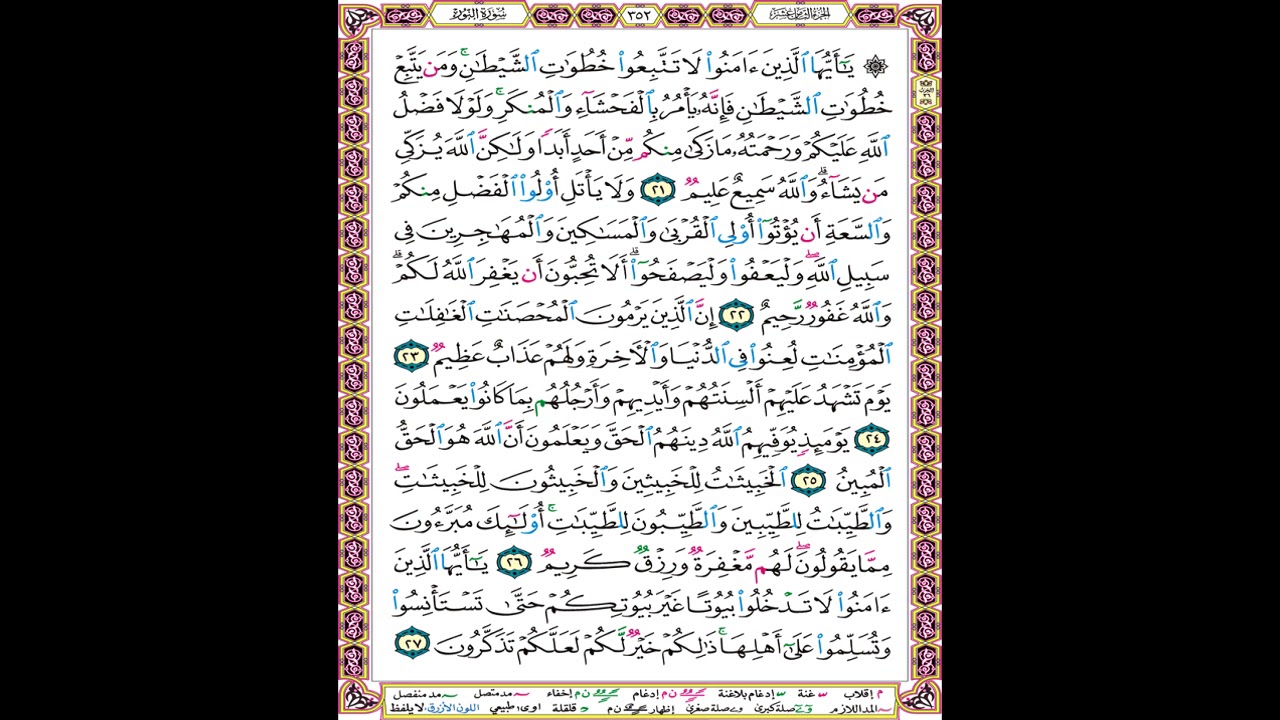 سُورَةُ النُّورِ ٣٥٢ الجُزْءُ الثَّامِنَ عَشَرَ
۞ يَـٰٓأَيُّهَا ٱلَّذِينَ ءَامَنُوا۟ لَا تَتَّبِعُوا۟ خُطُوَٰتِ ٱلشَّيْطَـٰنِ ۚ وَمَن يَتَّبِعْ
خُطُوَٰتِ ٱلشَّيْطَـٰنِ فَإِنَّهُۥ يَأْمُرُ بِٱلْفَحْشَآءِ وَٱلْمُنكَرِ ۚ وَلَوْلَا فَضْلُ
ٱللَّهِ عَلَيْكُمْ وَرَحْمَتُهُۥ مَا زَكَىٰ مِنكُم مِّنْ أَحَدٍ أَبَدًا وَلَـٰكِنَّ ٱللَّهَ يُزَكِّى
مَن يَشَآءُ ۗ وَٱللَّهُ سَمِيعٌ عَلِيمٌ ٢١ وَلَا يَأْتَلِ أُو۟لُوا۟ ٱلْفَضْلِ مِنكُمْ
وَٱلسَّعَةِ أَن يُؤْتُوٓا۟ أُو۟لِى ٱلْقُرْبَىٰ وَٱلْمَسَـٰكِينَ وَٱلْمُهَـٰجِرِينَ فِى
سَبِيلِ ٱللَّهِ ۖ وَلْيَعْفُوا۟ وَلْيَصْفَحُوٓا۟ ۗ أَلَا تُحِبُّونَ أَن يَغْفِرَ ٱللَّهُ لَكُمْ ۗ
وَٱللَّهُ غَفُورٌ رَّحِيمٌ ٢٢ إِنَّ ٱلَّذِينَ يَرْمُونَ ٱلْمُحْصَنَـٰتِ ٱلْغَـٰفِلَـٰتِ
ٱلْمُؤْمِنَـٰتِ لُعِنُوا۟ فِى ٱلدُّنْيَا وَٱلْـَٔاخِرَةِ وَلَهُمْ عَذَابٌ عَظِيمٌ ٢٣
يَوْمَ تَشْهَدُ عَلَيْهِمْ أَلْسِنَتُهُمْ وَأَيْدِيهِمْ وَأَرْجُلُهُم بِمَا كَانُوا۟ يَعْمَلُونَ
٢٤ يَوْمَئِذٍ يُوَفِّيهِمُ ٱللَّهُ دِينَهُمُ ٱلْحَقَّ وَيَعْلَمُونَ أَنَّ ٱللَّهَ هُوَ ٱلْحَقُّ
ٱلْمُبِينُ ٢٥ ٱلْخَبِيثَـٰتُ لِلْخَبِيثِينَ وَٱلْخَبِيثُونَ لِلْخَبِيثَـٰتِ ۖ
وَٱلطَّيِّبَـٰتُ لِلطَّيِّبِينَ وَٱلطَّيِّبُونَ لِلطَّيِّبَـٰتِ ۚ أُو۟لَـٰٓئِكَ مُبَرَّءُونَ
مِمَّا يَقُولُونَ ۖ لَهُم مَّغْفِرَةٌ وَرِزْقٌ كَرِيمٌ ٢٦ يَـٰٓأَيُّهَا ٱلَّذِينَ
ءَامَنُوا۟ لَا تَدْخُلُوا۟ بُيُوتًا غَيْرَ بُيُوتِكُمْ حَتَّىٰ تَسْتَأْنِسُوا۟
وَتُسَلِّمُوا۟ عَلَىٰٓ أَهْلِهَا ۚ ذَٰلِكُمْ خَيْرٌ لَّكُمْ لَعَلَّكُمْ تَذَكَّرُونَ ٢٧
م إقلاب غنة إدغام بلاغنة ن م إدغام ن م إخفاء مد متصل مد منفصل
المد اللازم صلة كبرى صلة صغرى إظهار ن م قلقلة اوى طبيعي اللون الأزرق لا يلفظ